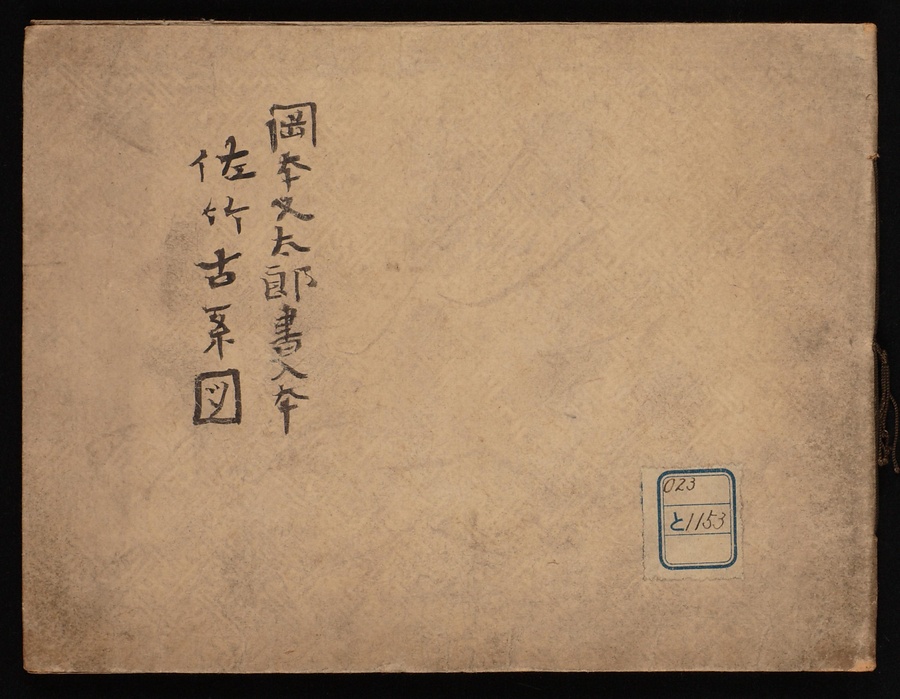 岡本又太郎書入本
佐竹古系図
023
と1153